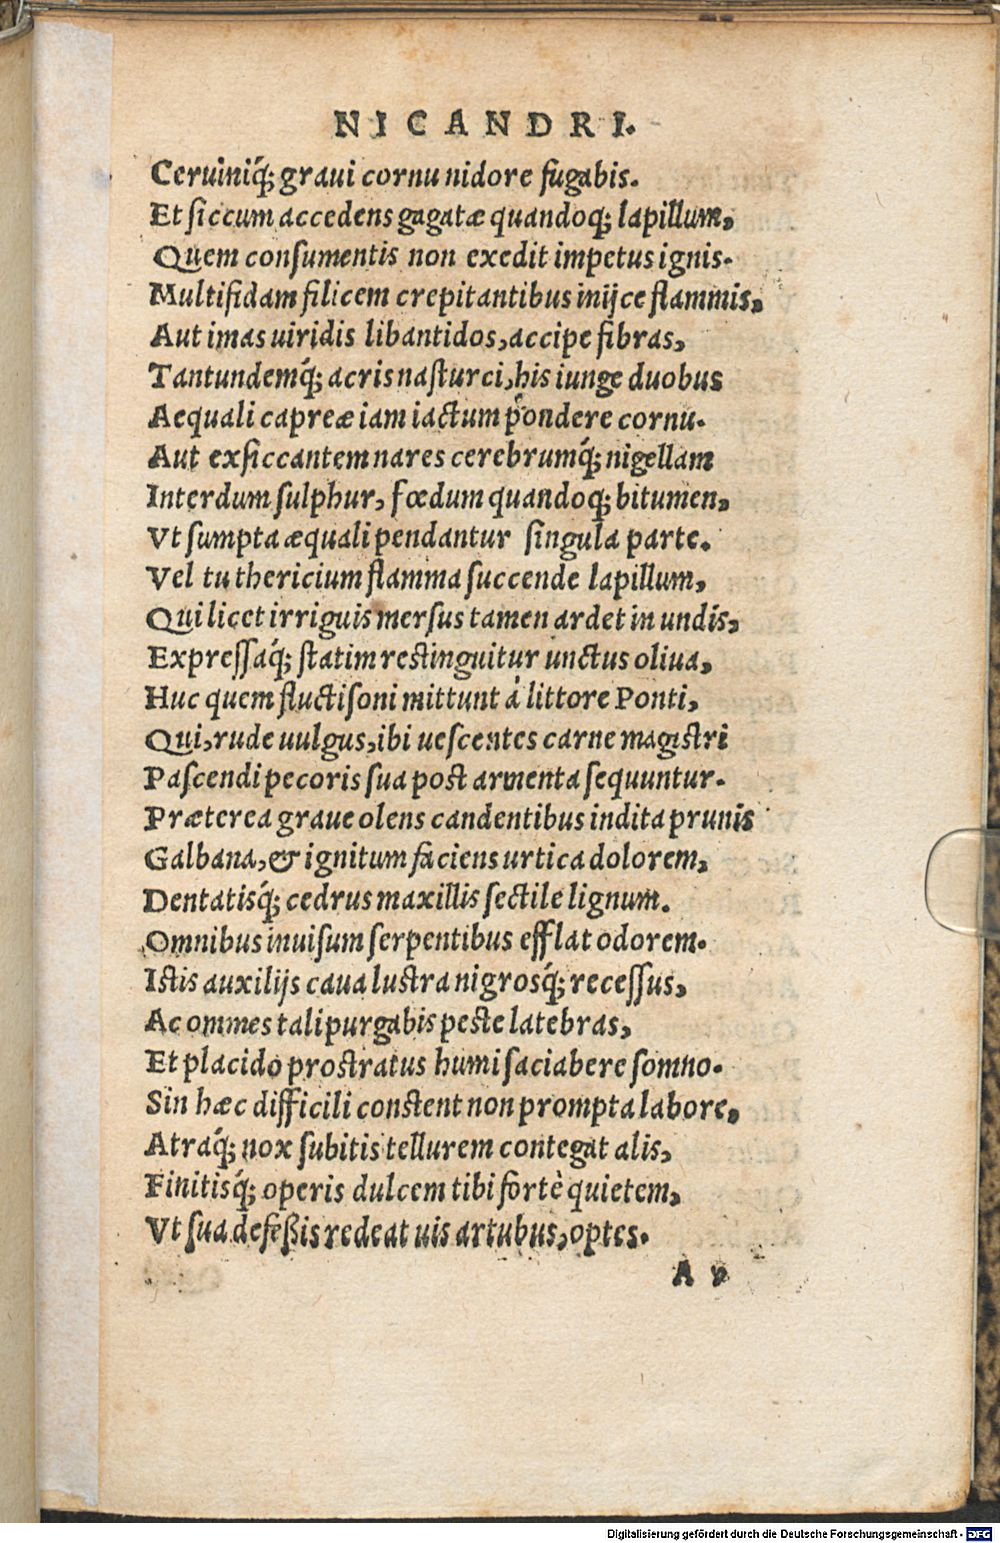 NICANDRI.
Ceruiniq́; graui cornu nidore fugabis.
Et ſiccum accedens gagatæ quandoq; lapillum,
Quem conſumentis non exedit impetus ignis.
Multifidam filicem crepitantibus inijce flammis,
Aut imas uiridis libantidos, accipe fibras,
Tantundemq́; acris naſturci, his iunge duobus
Aequali capreæ iam iactum pondere cornu.
Aut exſiccantem nares cerebrumq́; nigellam
Interdum ſulphur, fœdum quandoq; bitumen,
Vt ſumpta æquali pendantur ſingula parte.
Vel tu thericium flamma ſuccende lapillum,
Qui licet irriguis merſus tamen ardet in undis,
Expreſſaq́; ſtatim reſtinguitur unctus oliua,
Huc quem fluctiſoni mittunt à littore Ponti,
Qui, rude uulgus, ibi ueſcentes carne magiſtri
Paſcendi pecoris ſua poſt armenta ſequuntur.
Præterea graue olens candentibus indita prunis
Galbana, & ignitum faciens urtica dolorem,
Dentatisq́; cedrus maxillis ſectile lignum.
Omnibus inuiſum ſerpentibus efflat odorem.
Iſtis auxilijs caua luſtra nigrosq́; receſſus,
Ac ommes tali purgabis peſte latebras,
Et placido proſtratus humi ſaciabere ſomno.
Sin hæc difficili conſtent non prompta labore,
Atraq́; nox ſubitis tellurem contegat alis,
Finitisq́; operis dulcem tibi fortè quietem,
Vt ſua defeßis redeat uis artubus, optes.
A v
Digitalisierung gefördert durch die Deutsche Forschungsgemeinschaft - DFG